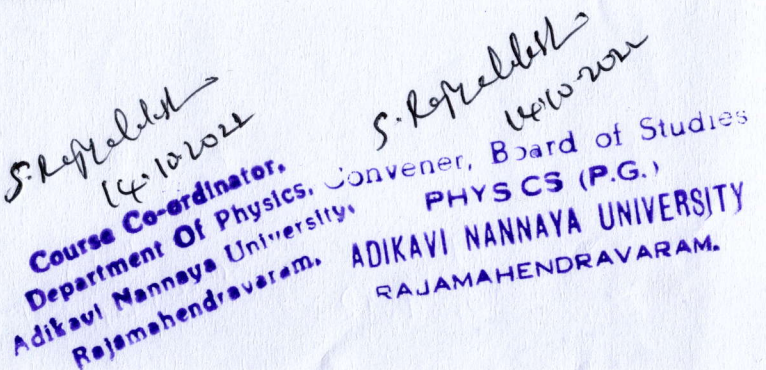 14.10.2022
Course Co-ordinator,
Department Of Physics,
Adikavi Nannaya University,
Rajamahendravaram.
14.10.2022
Convener, Board of Studies
PHYSICS (P.G.)
ADIKAVI NANNAYA UNIVERSITY
RAJAMAHENDRAVARAM.